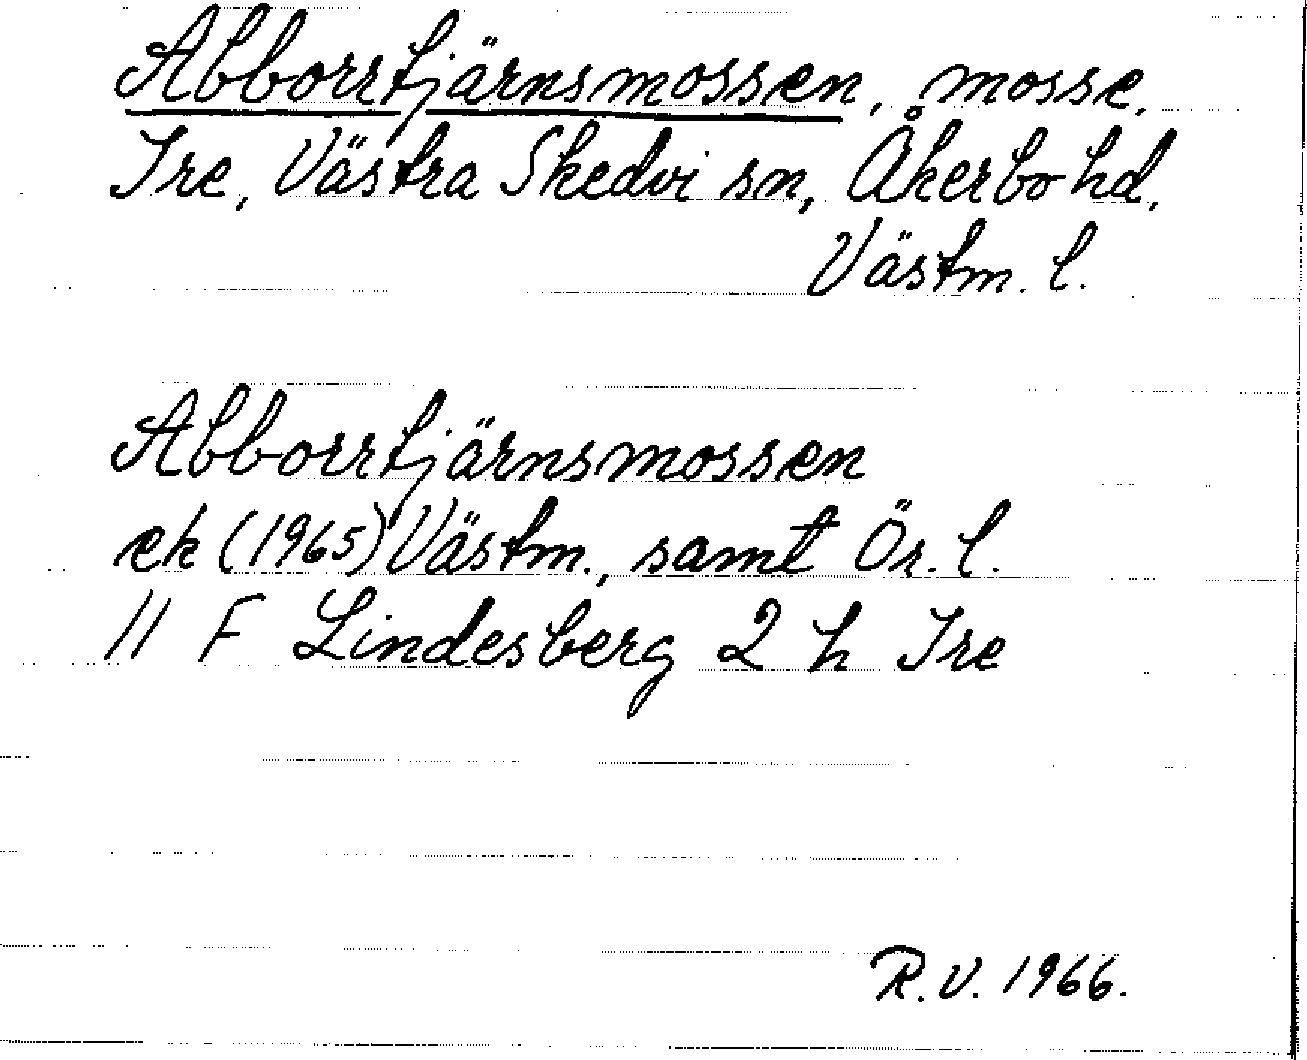 Abborrtjärnsmossen, mosse,
Tre, Västra Skedvi sn, Åkerbo hd,
Västm. l.
Abborrtjärnsmossen
ek (1965) Västm., samt Ör. l.
11 F Lindesberg 2 h Tre
R.V. 1966.